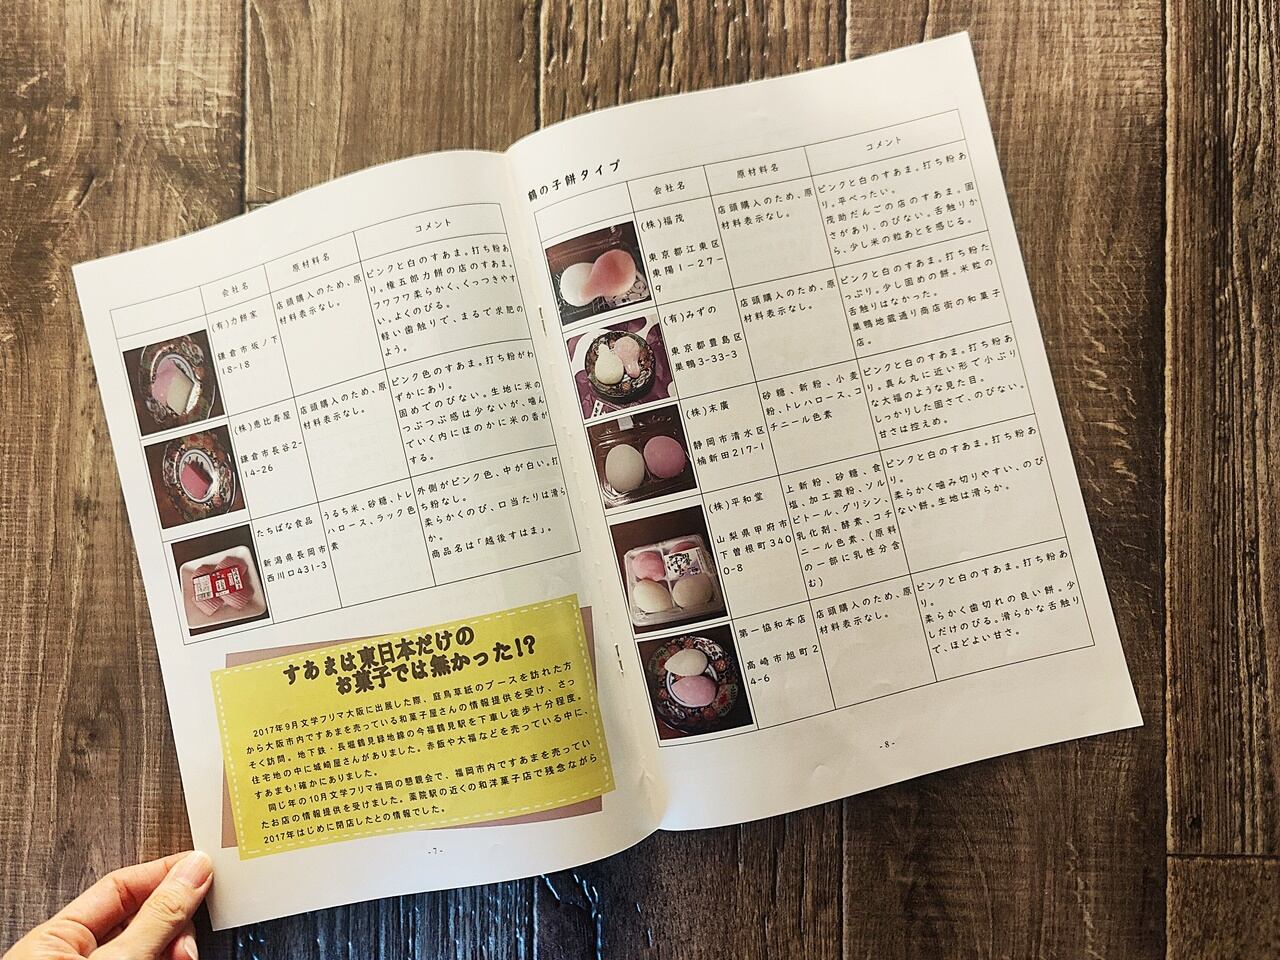 会社名
原材料名
コメント
(有)力餅家
鎌倉市坂ノ下
18-18
店頭購入のため、原
材料表示なし。
ピンクと白のすあま。打ち粉あ
り。権五郎力餅の店のすあま。
フワフワ柔らかく、くっつきやす
い。よくのびる。
軽い歯触りで、まるで求肥の
よう。
(株)恵比寿屋
鎌倉市長谷2-
14-26
店頭購入のため、原
材料表示なし。
ピンク色のすあま。打ち粉がわ
ずかにあり。
固めでのびない。生地に米の
つぶつぶ感は少ないが、噛ん
でいく内にほのかに米の香が
する。
たちばな食品
新潟県長岡市
西川口431-3
うるち米、砂糖、トレ
ハロース、ラック色
素
外側がピンク色、中が白い。打
ち粉なし。
柔らかくのび、口当たりは滑ら
か。
商品名は「越後すはま」。
すあまは東日本だけの
お菓子では無かった!?
2017年9月文学フリマ大阪に出展した際、庭鳥草紙のブースを訪れた方
から大阪市内ですあまを売っている和菓子屋さんの情報提供を受け、さっ
そく訪問。地下鉄・長堀鶴見緑地線の今福鶴見駅を下車し徒歩十分程度。
住宅地の中に城崎屋さんがありました。赤飯や大福などを売っている中に、
すあまも!確かにありました。
同じ年の10月文学フリマ福岡の懇親会で、福岡市内ですあまを売ってい
たお店の情報提供を受けました。薬院駅の近くの和洋菓子店で残念ながら
2017年はじめに閉店したとの情報でした。
-7-
鶴の子餅タイプ
会社名
原材料名
コメント
(株)福茂
東京都江東区
東陽1-27-
9
店頭購入のため、原
材料表示なし。
ピンクと白のすあま。打ち粉あ
り。平べったい。
茂助だんごの店のすあま。固
さがあり、のびない。舌触りか
ら、少し米の粒あとを感じる。
(有)みずの
東京都豊島区
巣鴨3-33-3
店頭購入のため、原
材料表示なし。
ピンクと白のすあま。打ち粉た
っぷり。少し固めの餅。米粒の
舌触りはなかった。
巣鴨地蔵通り商店街の和菓子
店。
(株)末廣
静岡市清水区
楠新田217-1
砂糖、新粉、小麦
粉、トレハロース、コ
チニール色素
ピンクと白のすあま。打ち粉あ
り。真ん丸に近い形で小ぶり
な大福のような見た目。
しっかりした固さで、のびない。
甘さは控えめ。
(株)平和堂
山梨県甲府市
下曽根町340
0-8
上新粉、砂糖、食
塩、加工澱粉、ソル
ビトール、グリシン、
乳化剤、酵素、コチ
ニール色素、(原料
の一部に乳性分含
む)
ピンクと白のすあま。打ち粉あ
り。
柔らかく噛み切りやすい、のび
ない餅。生地は滑らか。
第一協和本店
高崎市旭町2
4-6
店頭購入のため、原
材料表示なし。
ピンクと白のすあま。打ち粉あ
り。
柔らかく歯切れの良い餅。少
しだけのびる。滑らかな舌触り
で、ほどよい甘さ。
-8-